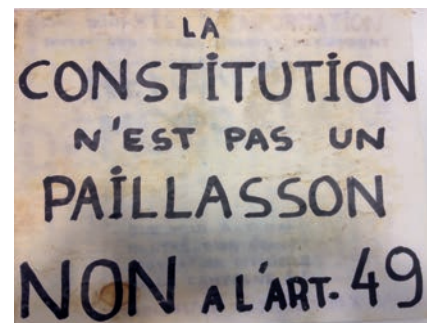 LA
CONSTİTUTİON
N'EST PAS UN
PAİLLASSON
NON A L'ART. 49